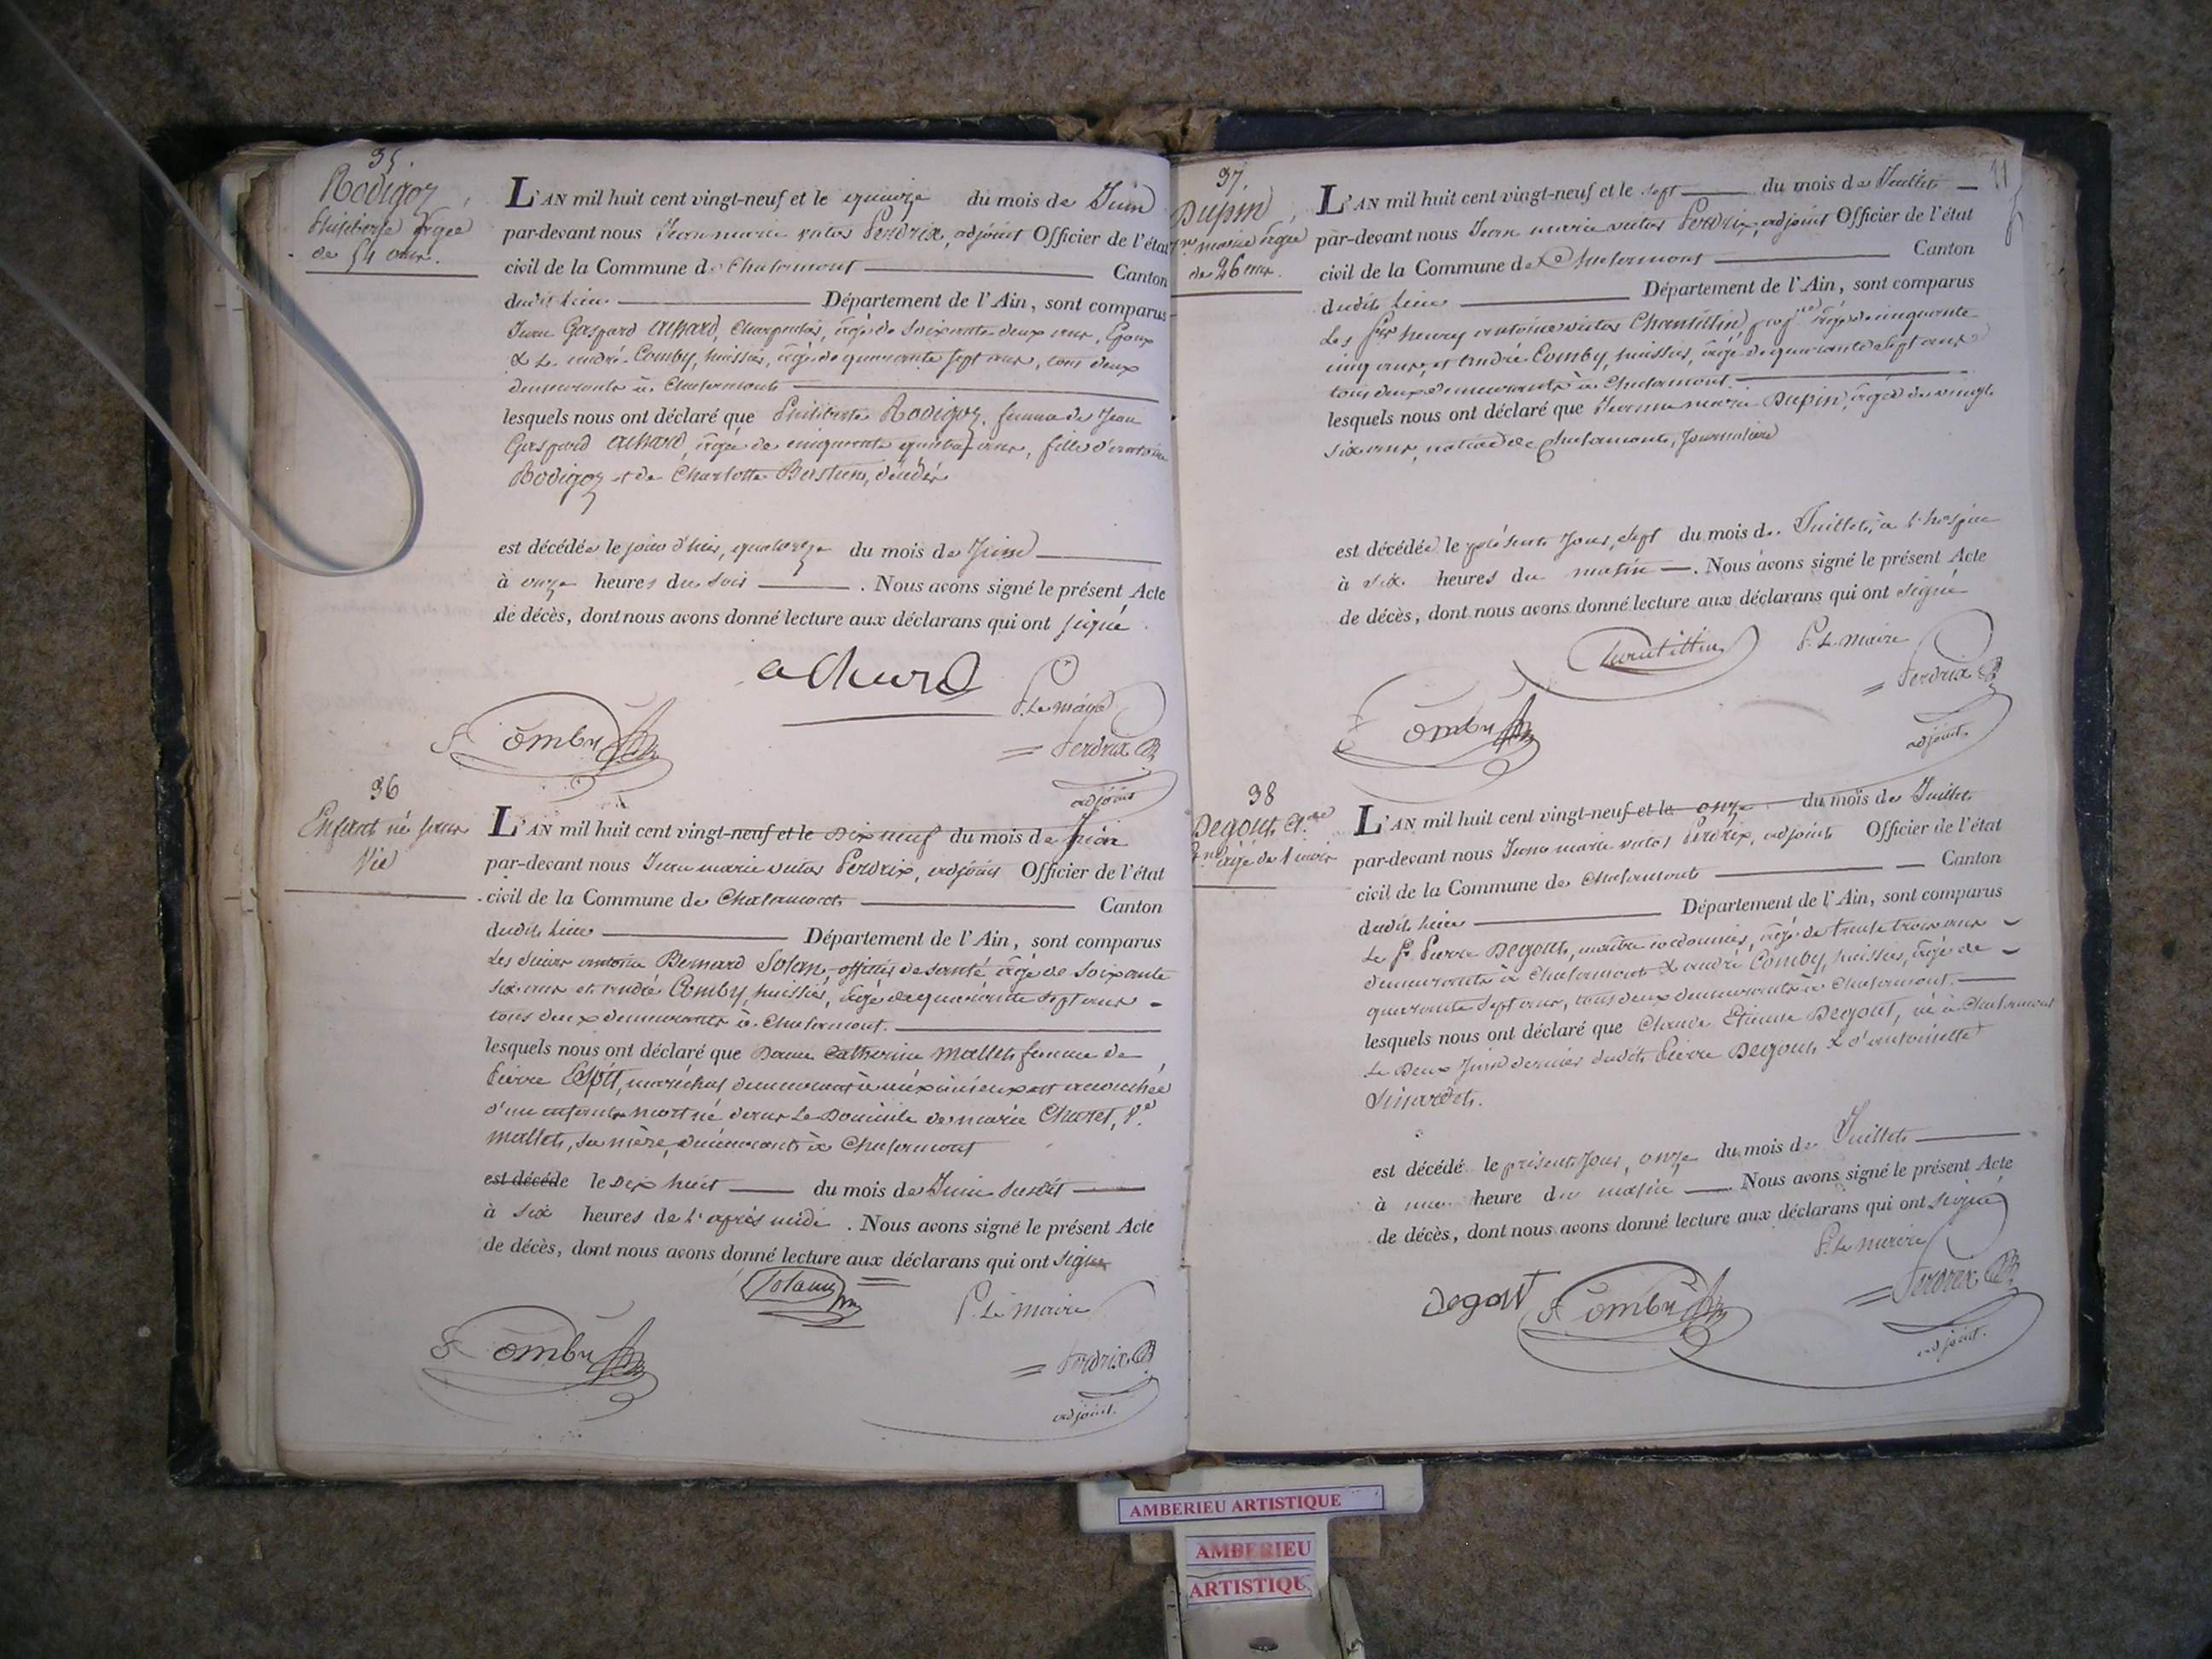 35.
Rodigoz,
Philiberte âgée
de 54 ans.
L'AN mil huit cent vingt-neuf et le quinze du mois de Juin
par-devant nous Jean marie victor Perdrix, adjoint Officier de l'état
civil de la Commune de Chalamont Canton
dudit lieu Département de l'Ain, sont comparus
Jean Gaspard Achard, Charpentier, âgé de soixante deux ans, Epoux
& Sr. andré Comby, huissier, âgé de quarante sept ans, tous deux
demeurants à Chalamont
lesquels nous ont déclaré que Philiberte Rodigoz, femme de Jean
Gaspard Achard, âgée de cinquante quatre ans, fille d'antoine
Rodigoz et de Charlotte décédés
est décédée le jour d'hier, quatorze du mois de Juin
à onze heures du soir . Nous avons signé le présent Acte
de décès, dont nous avons donné lecture aux déclarans qui ont signé.
achard
P. Le maire
Comby
Perdrix
adjoint
36
Enfant né sans
Vie
L'AN mil huit cent vingt-neuf et le Dix neuf du mois de juin
par-devant nous Jean marie victor Perdrix, adjoint Officier de l'état
civil de la Commune de Chalamont Canton
dudit lieu Département de l'Ain, sont comparus
Les sieurs antoine Bernard Solan, officier de santé âgé de soixante
six ans et andré Comby, huissier, âgé de quarante sept ans
tous deux demeurants à Chalamont.
lesquels nous ont déclaré que Dame Catherine Mallet femme de
Pierre maréchal demeurant à méximieux est accouchée
d'un enfant mort né dans le Domicile de marie Charet, Ve
Mallet, sa mère, demeurant à Chalamont
est décédé le Dix huit du mois de Juin susdit
à six heures de l'après midi . Nous avons signé le présent Acte
de décès, dont nous avons donné lecture aux déclarans qui ont signé
Solan
P. Le Maire
Comby
Perdrix
adjoint.
11
37
Dupin,
Jne marie âgée
de 26 ans.
L'AN mil huit cent vingt-neuf et le sept du mois de Juillet
par-devant nous Jean marie victor Perdrix, adjoint Officier de l'état
civil de la Commune de Chalamont Canton
dudit lieu Département de l'Ain, sont comparus
Les Srs henry antoine victor Chantillin, âgé de cinquante
cinq ans, et André Comby, huissier, âgé de quarante sept ans
tous deux demeurants à Chalamont.
lesquels nous ont déclaré que Jeanne marie Dupin, âgée de vingt
six ans, native de Chalamont, Journalière
est décédée le présent Jour, sept du mois de Juillet, à l'hospice
à six heures du matin . Nous avons signé le présent Acte
de décès, dont nous avons donné lecture aux déclarans qui ont signé
Chantillin
P. Le Maire
Perdrix
Comby
adjoint
38
Degout, Cde
Ene âgé de 1 mois
L'AN mil huit cent vingt-neuf et le onze du mois de Juillet
par-devant nous Jean marie victor Perdrix, adjoint Officier de l'état
civil de la Commune de Chalamont Canton
dudit lieu Département de l'Ain, sont comparus
Le Sr. Pierre Degout, maître cordonnier, âgé de trente trois ans
demeurant à Chalamont & andré Comby, huissier, âgé de
quarante sept ans, tous deux demeurants à Chalamont.
lesquels nous ont déclaré que Claude Etienne Degout, né à Chalamont
Le Deux Juin dernier dudit Pierre Degout & d'antoinette
est décédé le présent Jour, onze du mois de Juillet
à une heure du matin . Nous avons signé le présent Acte
de décès, dont nous avons donné lecture aux déclarans qui ont signé
P. Le maire
Degout Comby
Perdrix
adjoint.
AMBERIEU ARTISTIQUE
AMBERIEU
ARTISTIQU